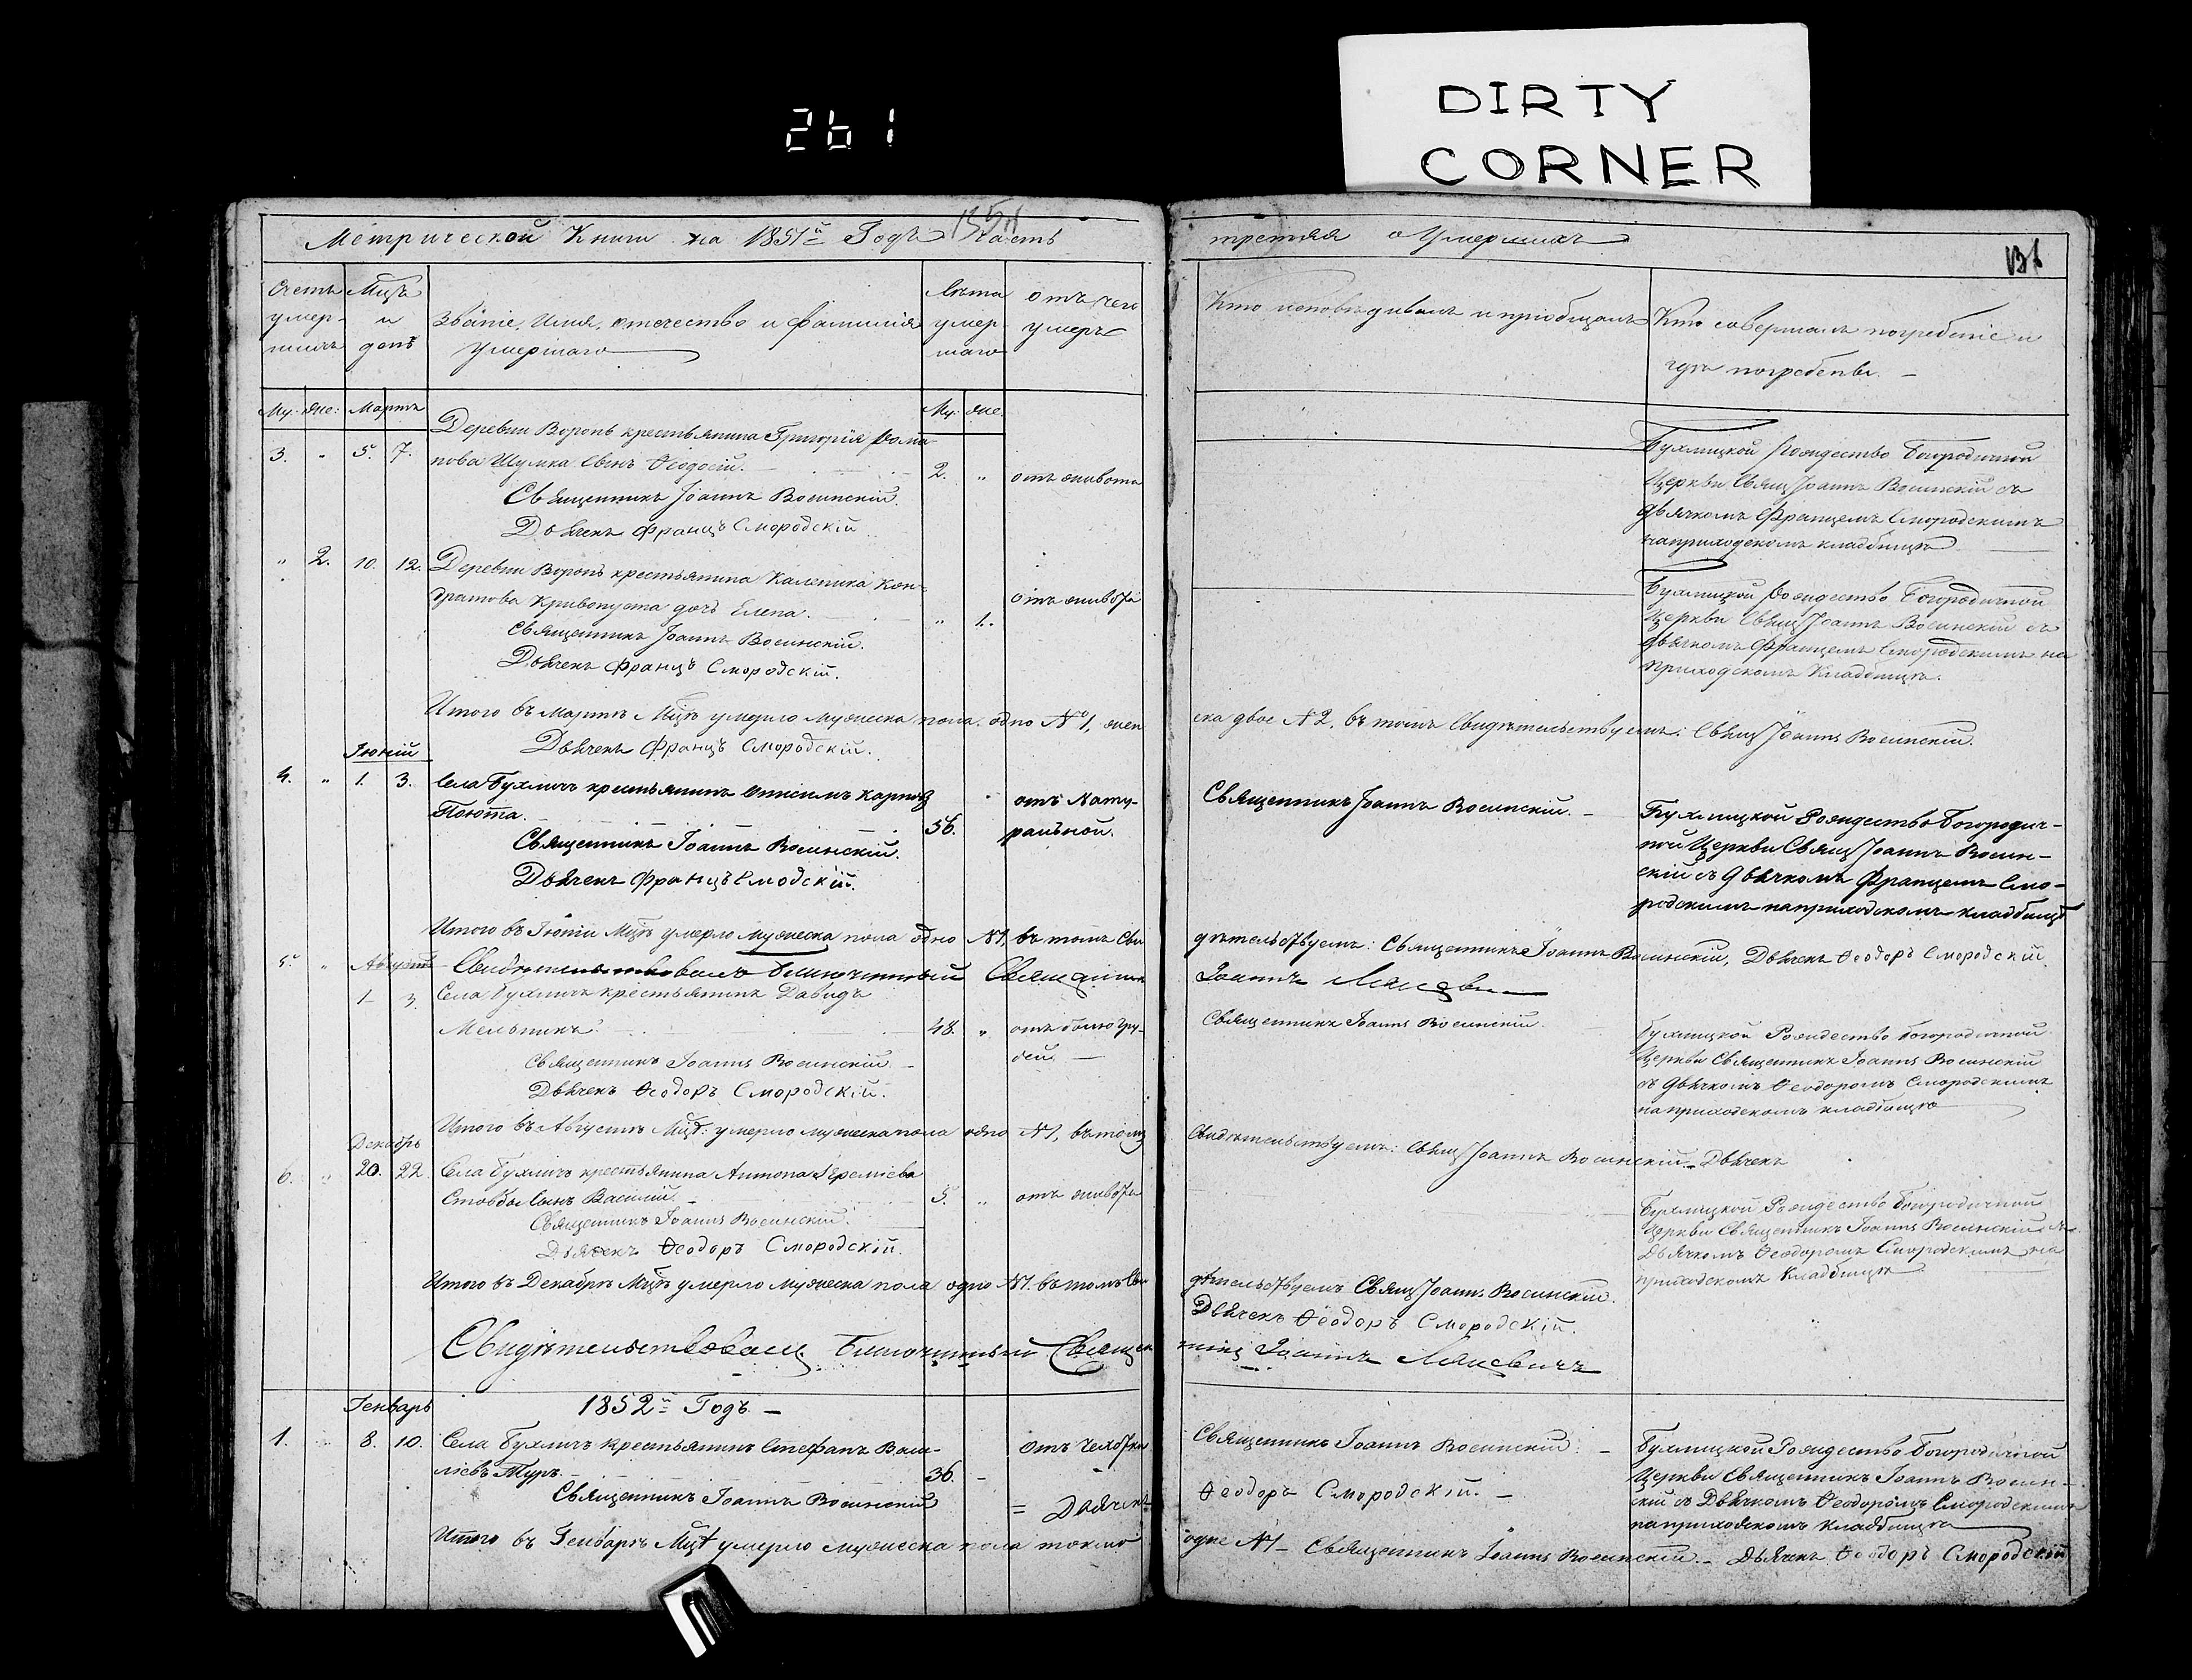 261
DIRTY
CORNER
Метрической Книги на 1851й Годъ Часть
третяя о Умершихъ
Счетъ умер-шихъ
Мцъ и день
Званіе, Имя, отчество и фамилія умершаго
Лѣта умер шаго
отъ чего умеръ
Кто исповѣдивалъ и пріобщалъ
Кто совершалъ погребеніе и
гдѣ погребены. –
Му. Же: Мартъ Му. Же.
3. „ 5. 7. Деревни Воронь крестьянина Григорія Рома
нова Шумка сынъ Ѳеодосій. 2. „ отъ живота
Священникъ Іоаннъ Восинскій.
Дьячекъ Францъ Смородскій
Бухлицкой Рождество Богородичной
Церкви Свящ Іоаннъ Восинскій съ
дьячкомъ Францемъ Смородскимъ
на приходскомъ кладбищѣ
„ 2. 10. 12. Деревни Воронь крестьянина Каленика Кон-
дратова Кривопуста дочь Елена. „ 1. отъ живота
Священникъ Іоаннъ Восинскій.
Дьячекъ Францъ Смородскій.
Бухлицкой Рождество Богородичной
Церкви Свящ Іоаннъ Восинскій съ
дьячкомъ Францемъ Смородскимъ на
приходскомъ Кладбищѣ.
Итого въ Мартѣ Мцѣ умерло мужеска пола одно №1, жен
ска двое №2. въ томъ Свидѣтельствуемъ: Свящ Іоаннъ Восинскій.
Дьячекъ Францъ Смородскій.
Іюній
4. „ 1. 3. Села Бухличъ крестьянинъ Онисимъ Карповъ
Поюта. 56. отъ Нату-
ральной.
Священникъ Іоаннъ Восинскій.
Дьячекъ Францъ Смодскій.
Священникъ Іоаннъ Восинскій. –
Бухлицкой Рождество Богородич-
ной Церкви Свящ Іоаннъ Восин-
скій съ Дьячкомъ Францемъ Смо-
родскимъ на приходскомъ кладбищѣ
Итого въ Іюніи Мцѣ умерло мужеска пола одно №1, въ томъ Сви
дѣтельствуемъ: Священникъ Іоаннъ Восинскій, Дьячекъ Ѳеодоръ Смородскій.
5. „ Августъ Свидѣтельствовалъ Благочинный Священникъ
Іоаннъ
1 3. Села Бухличъ крестьянинъ Давидъ
Мельникъ. 48. „ отъ боли гру-
дей. –
Священникъ Іоаннъ Восинскій –
Дьячекъ Ѳеодоръ Смородскій.
Священникъ Іоаннъ Восинскій.
Бухлицкой Рождество Богородичной
Церкви Священникъ Іоаннъ Восинскій
съ Дьячкомъ Ѳеодоромъ Смородскимъ
на приходскомъ кладбищѣ
Итого въ Августѣ Мцѣ: умерло мужеска пола одно №1, въ томъ
Свидѣтельствуемъ: Свящ Іоаннъ Восинскій. – Дьячекъ
Декабрь
6. „ 20. 22. Села Бухличъ крестьянина Антона Яремѣева
Стовбы Сынъ Василій. 5. „ отъ живота
Священникъ Іоаннъ Восинскій.
Дьячекъ Ѳеодоръ Смородскій.
Бухлицкой Рождество Богородичной
Церкви Священникъ Іоаннъ Восинскій съ
Дьячкомъ Ѳеодоромъ Смородскимъ на
приходскомъ Кладбищѣ
Итого въ Декабрѣ Мцѣ умерло мужеска пола одно №1. въ томъ Сви
дѣтельствуемъ Свящ Іоаннъ Восинскій.
Дьячекъ Ѳеодоръ Смородскій.
Свидѣтельствовалъ Благочинный Священ
никъ Іоаннъ
Генварь 1852й Годъ. –
1. 8. 10. Села Бухличъ Крестьянинъ Стефанъ Васи-
ліевъ Туръ. 36. – отъ Чехотки
Священникъ Іоаннъ Восинскій = Дьячекъ
Священникъ Іоаннъ Восинскій. –
Ѳеодоръ Смородскій. –
Бухлицкой Рождество Богородичной
Церкви Священникъ Іоаннъ Восин-
скій съ Дьячкомъ Ѳеодоромъ Смородскимъ
на приходскомъ Кладбищѣ
Итого въ Генварѣ Мцѣ умерло мужеска пола токмо
одне №1 – Священникъ Іоаннъ Восинскій. – Дьячекъ Ѳеодоръ Смородскій